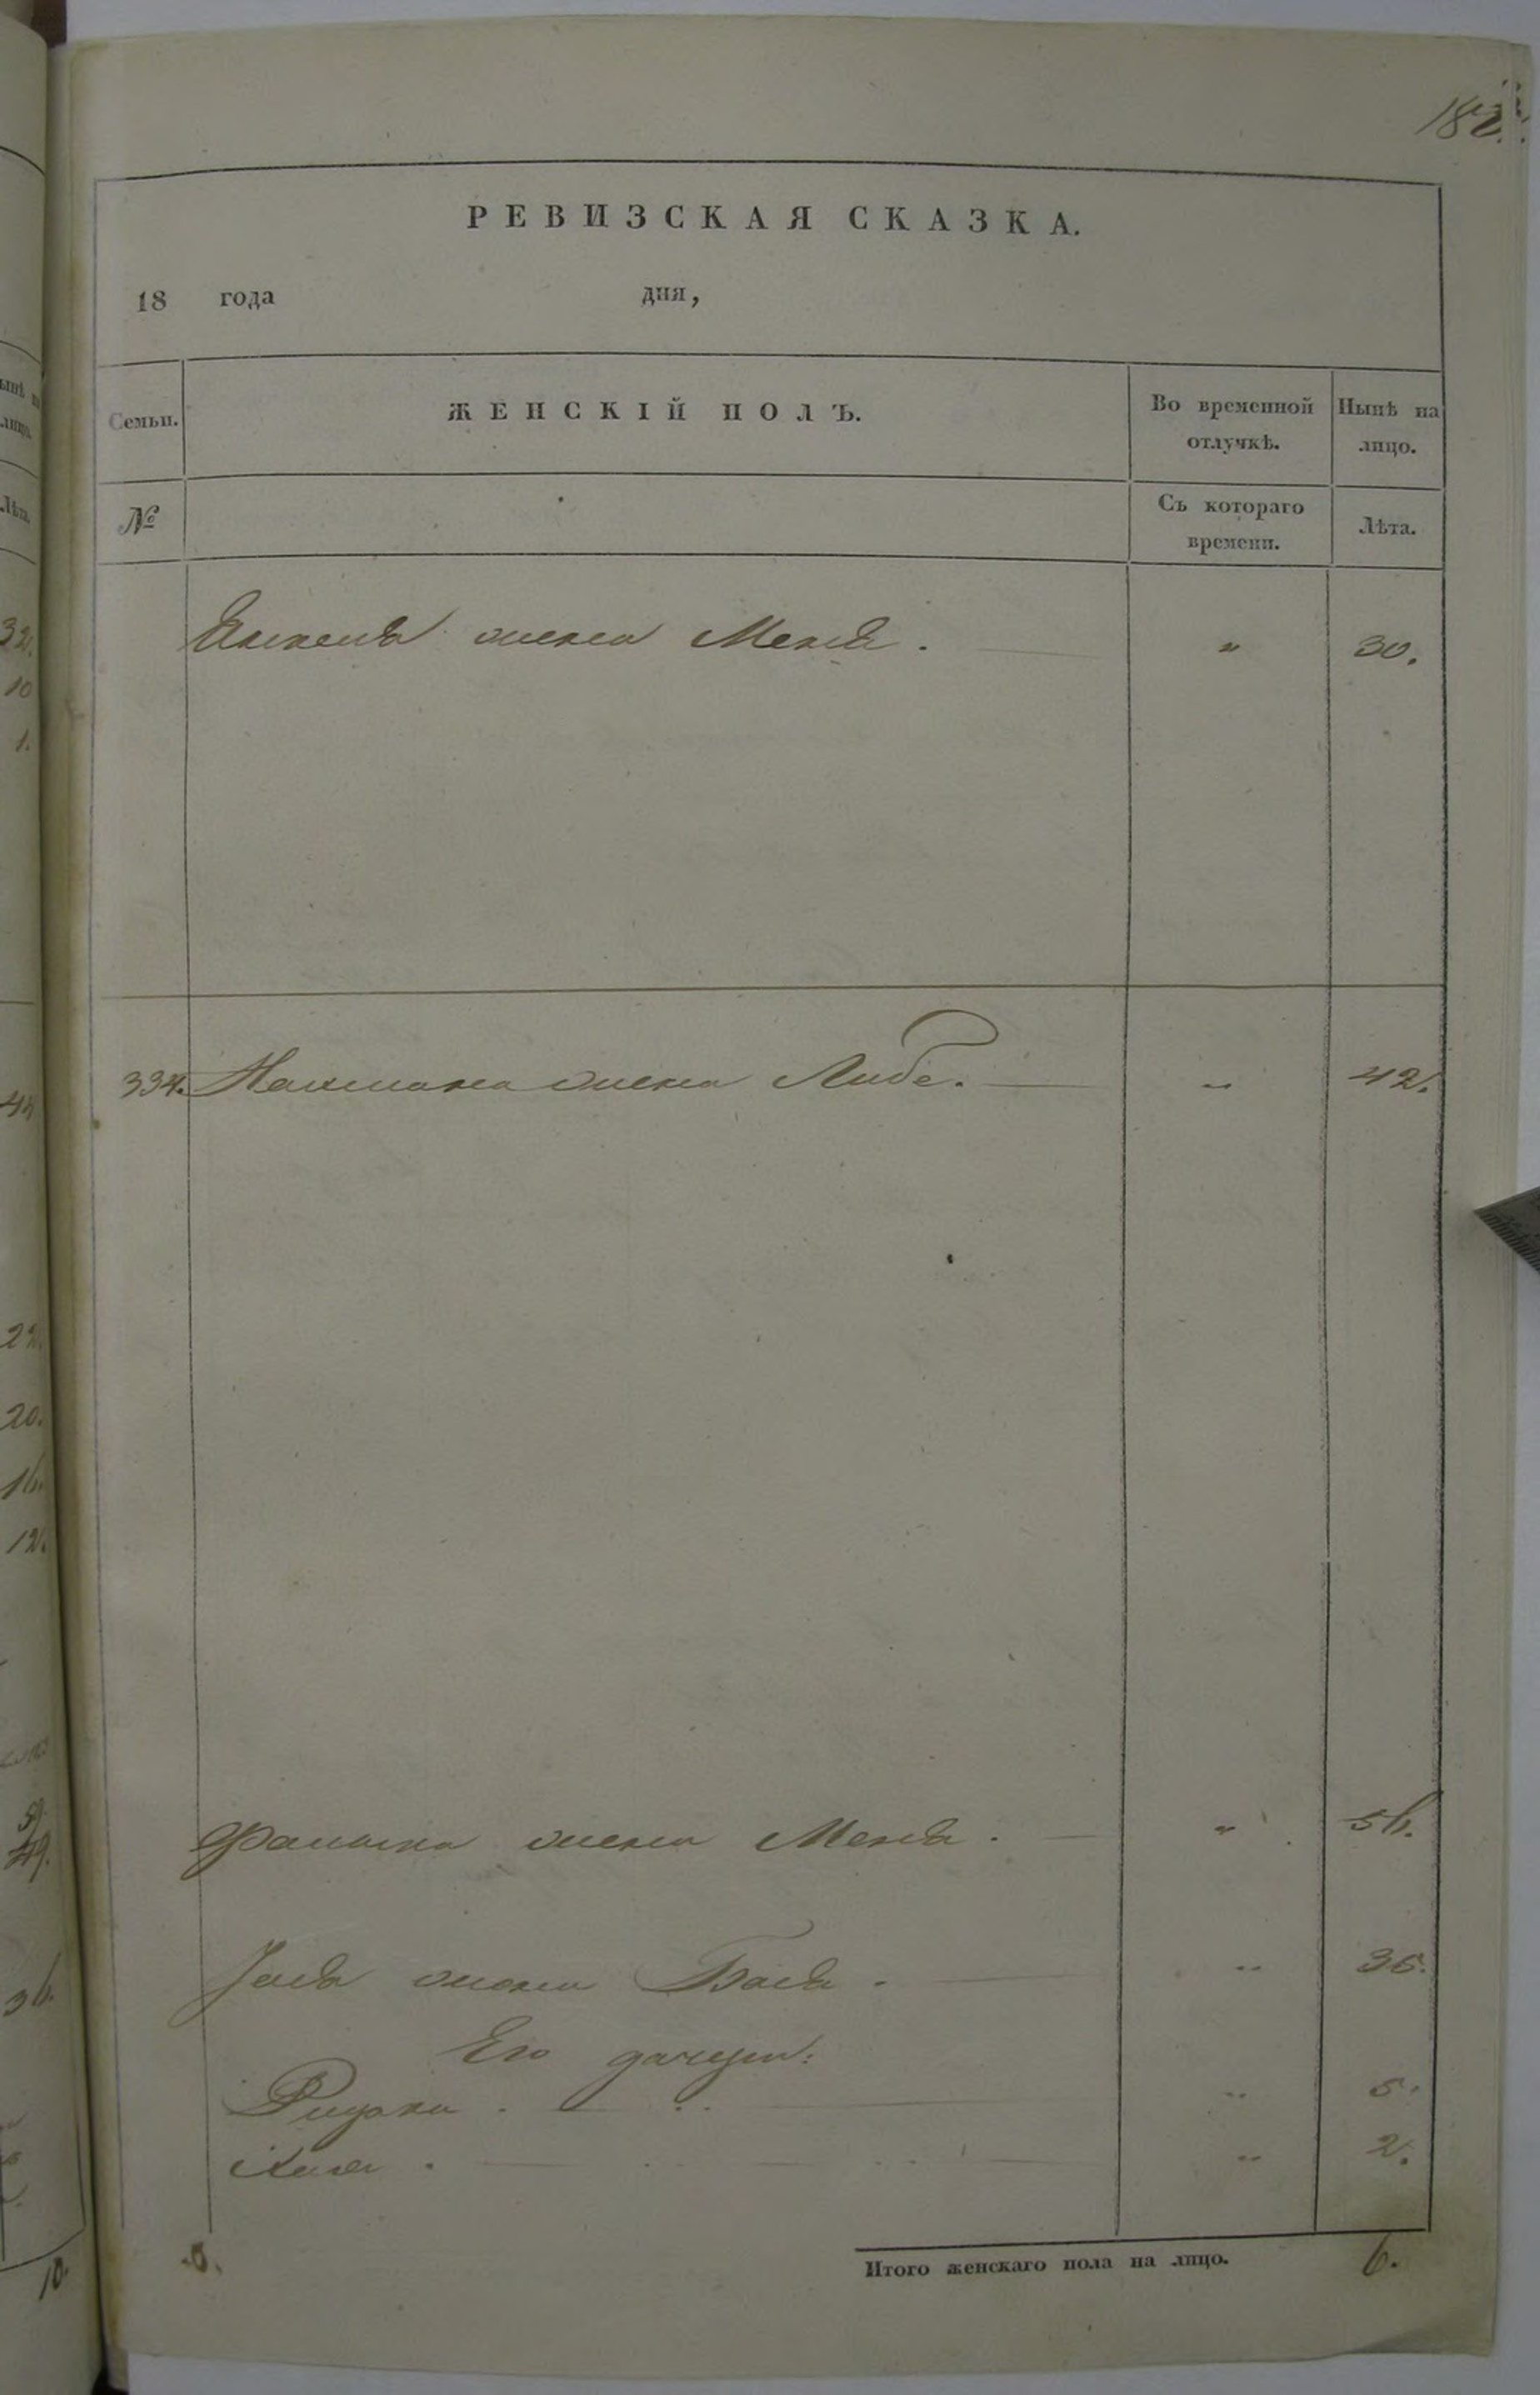 182.
РЕВИЗСКАЯ СКАЗКА.
18 года дня,
Семьи. ЖЕНСКІЙ ПОЛЪ. Во временной отлучкѣ. Нынѣ на лицо.
№ Съ котораго времени. Лѣта.
жена 30.
334. Нахмана жена Либе. 42.
жена 56.
жена Бася. 36.
Его дочери:
5.
Хая. 2.
Итого женскаго пола на лицо. 6.
32.
10
1.
20.
16.
12.
36.
10.